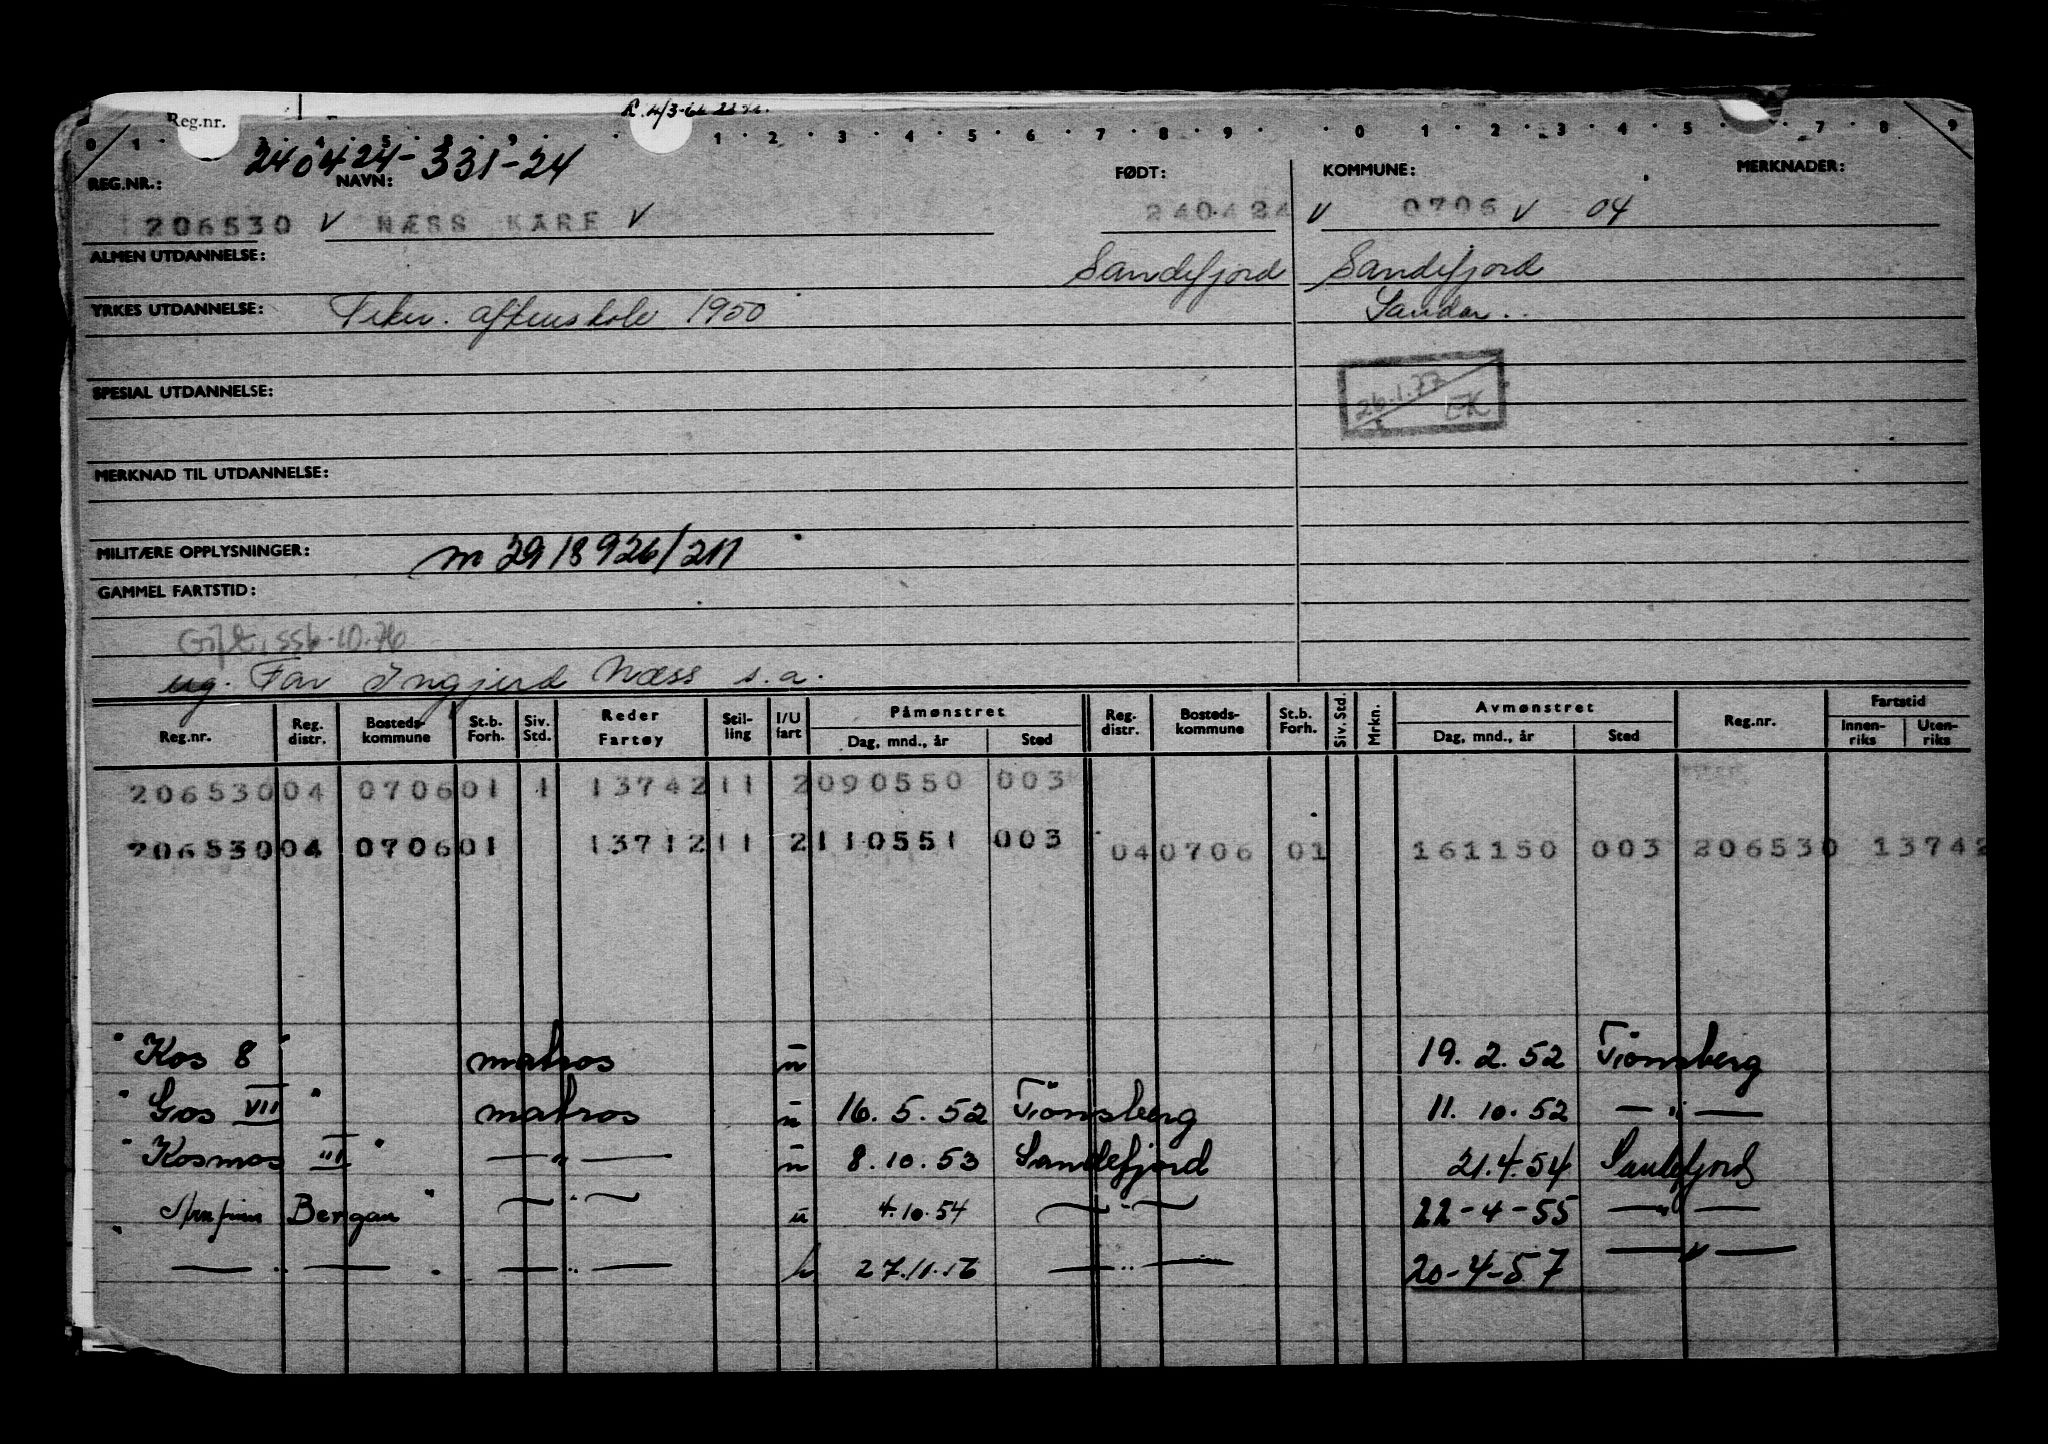 Reg.nr.
0 1 1 2 3 4 5 6 7 8 9 0 1 2 3 4 5 7 8 9
240424-331-24
REG.NR.: NAVN: FØDT: KOMMUNE: MERKNADER:
206530 V NÆSS KARE V 240424 V 0706 V 04
ALMEN UTDANNELSE: Sandefjord Sandefjord
YRKES UTDANNELSE: Tekn. aftenskole 1950 Sandar..
26.1.77 EK
SPESIAL UTDANNELSE:
MERKNAD TIL UTDANNELSE:
MILITÆRE OPPLYSNINGER: m 2918926/211
GAMMEL FARTSTID:
Gift, 10.76
ug. Far Ingjerd Næss s.a.
Reg.nr. Reg. distr. Bosteds-kommune St.b. Forh. Siv. Std. Reder Fartøy Stil-ling I/U fart Påmønstret Dag, mnd., år Sted Reg. distr. Bosteds-kommune St.b. Forh. Siv. Std. Mrkn. Avmønstret Dag, mnd., år Sted Reg.nr. Fartstid Innen-riks Uten-riks
206530 04 0706 01 1 13742 11 2 090550 003
206530 04 0706 01 13712 11 2 110551 003 04 0706 01 161150 003 206530 13742
" Kos 8 " matros u 19. 2. 52 Tønsberg
" Gos VII " matros u 16. 5. 52 Tønsberg 11. 10. 52 — " —
" Kosmos III " — " — u 8. 10. 53 Sandefjord 21.4.54 Sandefjord
Bergan " — " — u 4.10.54 — " — 22-4-55 — " —
" — " — — " — 27.11. — " — 20-4-57 — " —